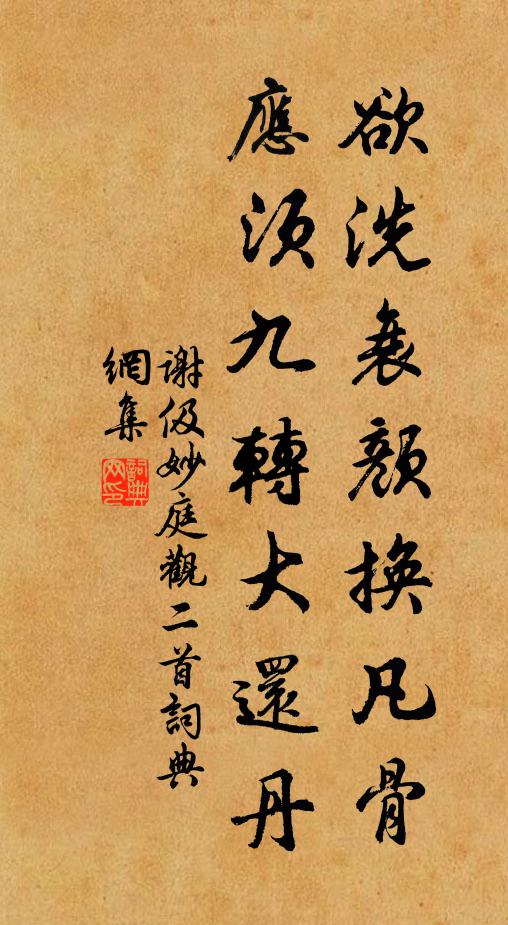 欲洗衰顏換凡骨
應須九轉大還丹
謝伋妙庭觀二首詞典
網集
詞典
网印